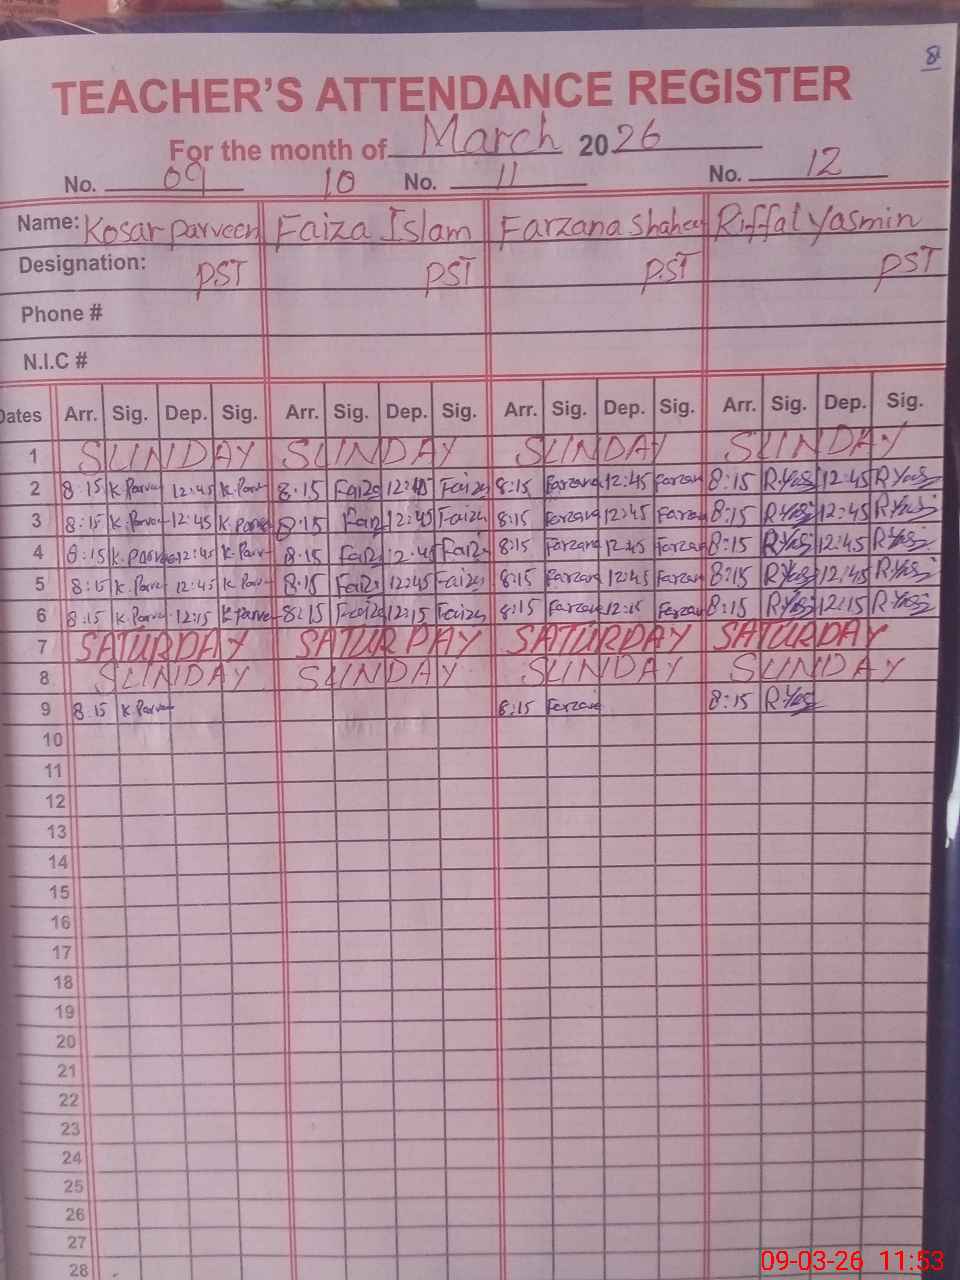 8
TEACHER'S ATTENDANCE REGISTER
For the month of March 2026
No. 09 10 No. 11 No. 12
Name: Kosar Parveen Faiza Islam Farzana Shaheen Riffat Yasmin
Designation: PST PST PST PST
Phone #
N.I.C #
Dates Arr. Sig. Dep. Sig. Arr. Sig. Dep. Sig. Arr. Sig. Dep. Sig. Arr. Sig. Dep. Sig.
1 SUNDAY SUNDAY SUNDAY SUNDAY
2 8:15 K.Parve 12:45 K.Parv 8:15 Faiza 12:45 Faiza 8:15 Farzana 12:45 Farzan 8:15 R.Yas 12:45 R.Yas
3 8:15 K.Parve 12:45 K.Parve 8:15 Faiza 12:45 Faiza 8:15 Farzana 12:45 Farzan 8:15 R.Yas 12:45 R.Yas
4 8:15 K.Parve 12:45 K.Parv 8:15 Faiza 12:45 Faiza 8:15 Farzana 12:45 Farzan 8:15 R.Yas 12:45 R.Yas
5 8:15 K.Parve 12:45 K.Parv 8:15 Faiza 12:45 Faiza 8:15 Farzana 12:45 Farzan 8:15 R.Yas 12:45 R.Yas
6 8:15 K.Parve 12:15 K.Parve 8:15 Faiza 12:15 Faiza 8:15 Farzana 12:15 Farzan 8:15 R.Yas 12:15 R.Yas
7 SATURDAY SATURDAY SATURDAY SATURDAY
8 SUNDAY SUNDAY SUNDAY SUNDAY
9 8:15 K.Parve 8:15 Farzana 8:15 R.Yas
10
11
12
13
14
15
16
17
18
19
20
21
22
23
24
25
26
27
28
09-03-26 11:53